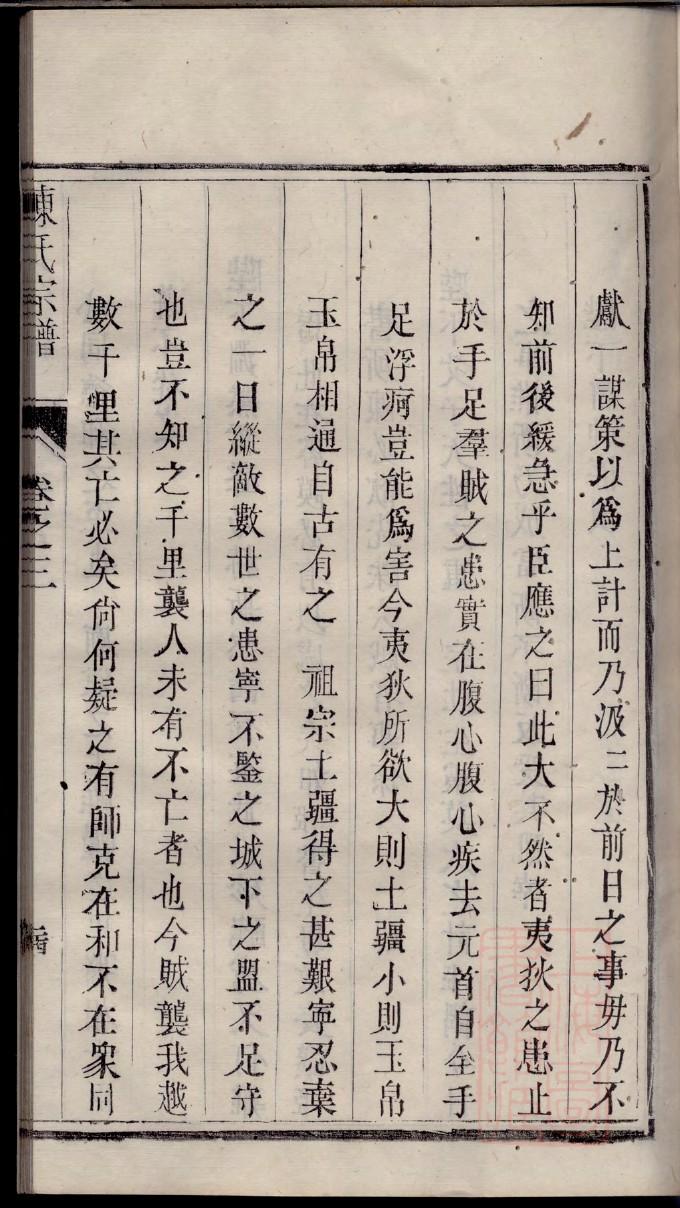 獻一謀策以為上計而乃汲〻於前日之事毋乃不
知前後緩急乎臣應之曰此大不然者夷狄之患止
於手足羣賊之患實在腹心腹心疾去元首自全手
足浮疴豈能為害今夷狄所欲大則土疆小則玉帛
玉帛相通自古有之　祖宗土疆得之甚艱寧忍棄
之一日縱敵數世之患寧不鑒之城下之盟不足守
也豈不知之千里襲人未有不亡者也今賊襲我越
數千里其亡必矣尙何疑之有師克在和不在衆同
陳氏宗譜
卷之三